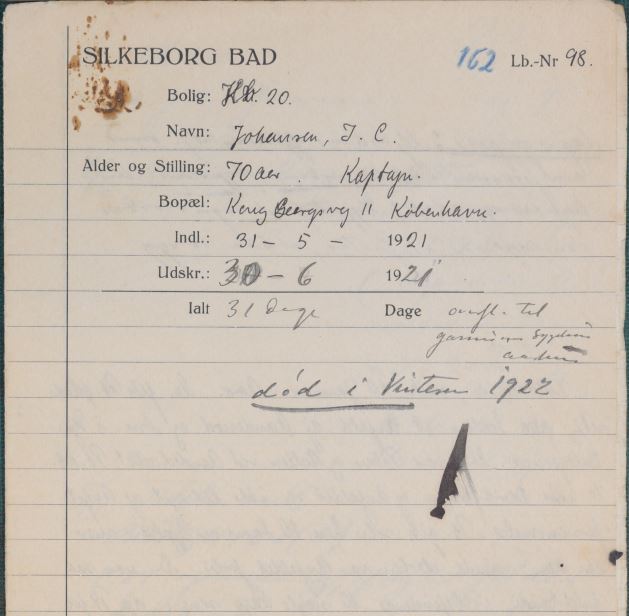 SILKEBORG BAD 162 Lb.-Nr 98.
Bolig: 20.
Navn: Johansen, J. C.
Alder og Stilling: 70 aar. Kaptajn.
Bopæl: Kong Georgsvej 11 København.
Indl.: 31 - 5 - 1921
Udskr.: 30 - 6 1921
Ialt 31 Dage Dage overfl. til
død i Vinteren 1922